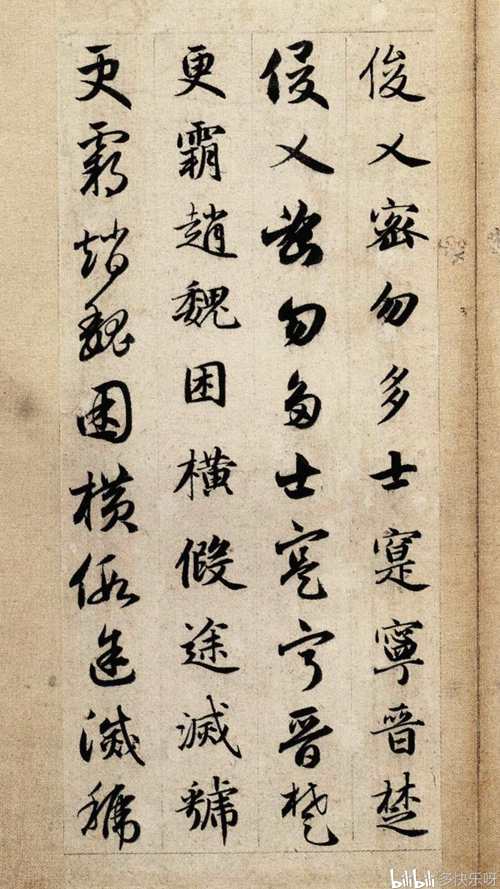 俊乂密勿多士寔寧晉楚
俊乂密勿多士寔寧晉楚
更霸趙魏困橫假途滅虢
更霸趙魏困橫假途滅虢
bilibili 多快乐呀